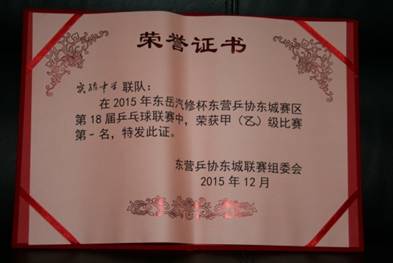 荣誉证书
实验中学联队：
在2015年东岳汽修杯东营乒协东城赛区
第18届乒乓球联赛中，荣获甲（乙）级比赛
第一名，特发此证。
东营乒协东城联赛组委会
2015年12月